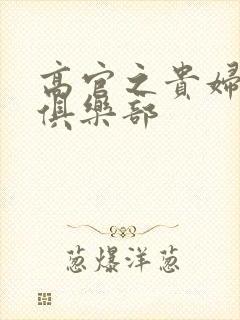 高官之貴婦
俱樂部
葱爆洋葱